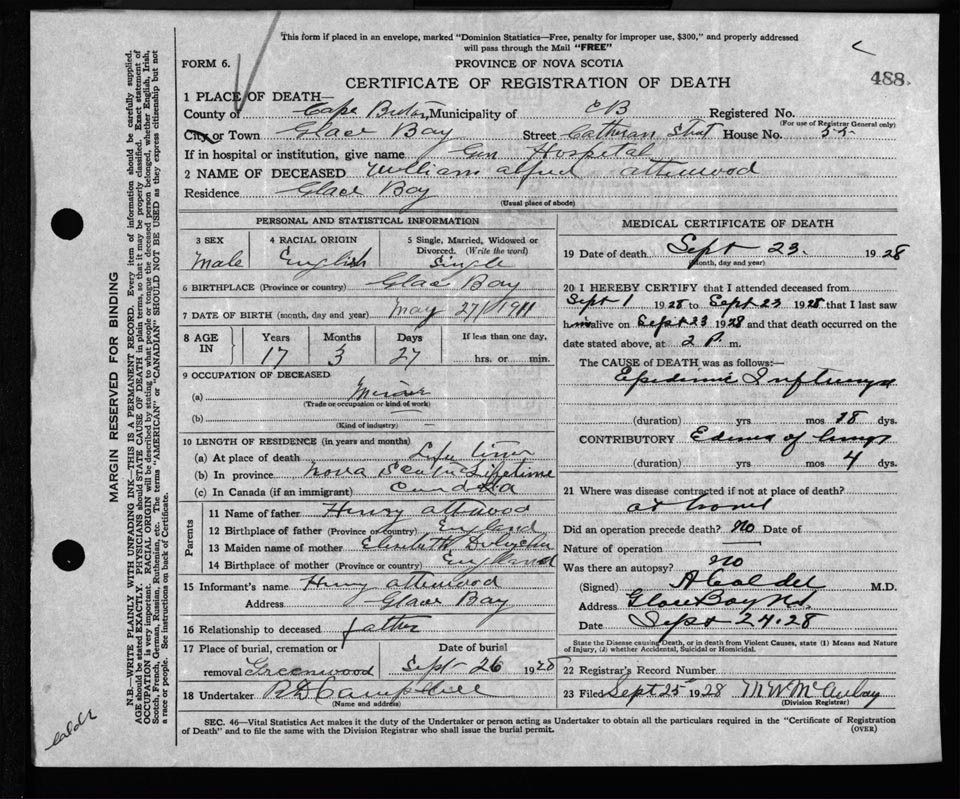 This form if placed in an envelope, marked "Dominion Statistics—Free, penalty for improper use, $300," and properly addressed
will pass through the Mail "FREE"
FORM 6.
PROVINCE OF NOVA SCOTIA
488
CERTIFICATE OF REGISTRATION OF DEATH
1 PLACE OF DEATH—
County of Cape Breton, Municipality of C B Registered No.
(For use of Registrar General only)
City or Town Glace Bay Street House No. 55
If in hospital or institution, give name Gen Hospital
2 NAME OF DECEASED William Alfred Attwood
Residence Glace Bay
(Usual place of abode)
PERSONAL AND STATISTICAL INFORMATION
3 SEX 4 RACIAL ORIGIN 5 Single, Married, Widowed or
Divorced. (Write the word)
Male English Single
6 BIRTHPLACE (Province or country) Glace Bay
7 DATE OF BIRTH (month, day and year) May 27/1911
8 AGE IN Years Months Days If less than one day,
17 3 27 hrs. or min.
9 OCCUPATION OF DECEASED
(a) Miner
(Trade or occupation or kind of work)
(b)
(Kind of industry)
10 LENGTH OF RESIDENCE (in years and months)
(a) At place of death Life time
(b) In province Nova Scotia Lifetime
(c) In Canada (if an immigrant) Canada
Parents
11 Name of father Henry Attwood
12 Birthplace of father (Province or country) England
13 Maiden name of mother Elizabeth
14 Birthplace of mother (Province or country) England
15 Informant's name Henry Attenwood
Address Glace Bay
16 Relationship to deceased father
17 Place of burial, cremation or Date of burial
removal Greenwood Sept 26 1928
18 Undertaker A D Campbell
(Name and address)
MEDICAL CERTIFICATE OF DEATH
19 Date of death Sept 23. 1928
(Month, day and year)
20 I HEREBY CERTIFY that I attended deceased from
Sept 1 1928 to Sept 23 1928 that I last saw
him alive on Sept 23 1928 and that death occurred on
date stated above, at 2 P. m.
The CAUSE of DEATH was as follows:—
Epidemic Influenza
(duration) yrs mos 18 dys.
CONTRIBUTORY Edema of lungs
(duration) yrs. mos 4 dys.
21 Where was disease contracted if not at place of death?
at home
Did an operation precede death? No Date of
Nature of operation
Was there an autopsy? no
(Signed) A Calder M.D.
Address Glace Bay NS.
Date Sept 24. 28
State the Disease causing Death, or in death from Violent Causes, state (1) Means and Nature
of Injury, (2) whether Accidental, Suicidal or Homicidal.
22 Registrar's Record Number
23 Filed Sept 25 1928 M W McAulay
(Division Registrar)
SEC. 46—Vital Statistics Act makes it the duty of the Undertaker or person acting as Undertaker to obtain all the particulars required in the "Certificate of Registration
of Death" and to file the same with the Division Registrar who shall issue the burial permit. (OVER)
MARGIN RESERVED FOR BINDING
N.B.—WRITE PLAINLY WITH UNFADING INK—THIS IS A PERMANENT RECORD. Every item of information should be carefully supplied.
AGE should be stated EXACTLY. PHYSICIANS should STATE CAUSE OF DEATH in plain terms, so that it may be properly classified. Exact statement of
OCCUPATION is very important. RACIAL ORIGIN will be described by stating to what people or tongue the deceased person belonged, whether English, Irish,
Scotch, French, German, Russian, Ruthenian, etc. The terms "AMERICAN" or "CANADIAN" SHOULD NOT BE USED as they express citizenship but not
a race or people. See instructions on back of Certificate.
Calder